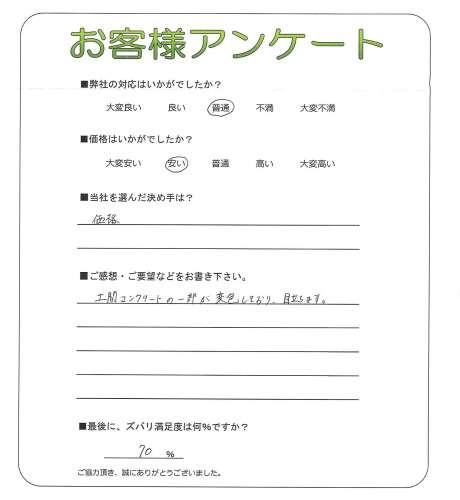 お客様アンケート
■弊社の対応はいかがでしたか？
大変良い 良い 普通 不満 大変不満
■価格はいかがでしたか？
大変安い 安い 普通 高い 大変高い
■当社を選んだ決め手は？
価格
■ご感想・ご要望などをお書き下さい。
土間コンクリートの一部が変色しており、目立ちます。
■最後に、ズバリ満足度は何%ですか？
70 %
ご協力頂き、誠にありがとうございました。